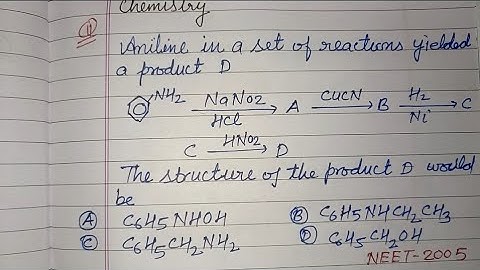 Chemistry
11
Aniline in a set of reactions yielded
a product D
NH2 NaNO2 HCl A CUCN B H2 Ni C
C HNO2 D
The structure of the product D would
be
A C6H5NHOH B C6H5NHCH2CH3
C C6H5CH2NH2 D C6H5CH2OH
NEET-2005